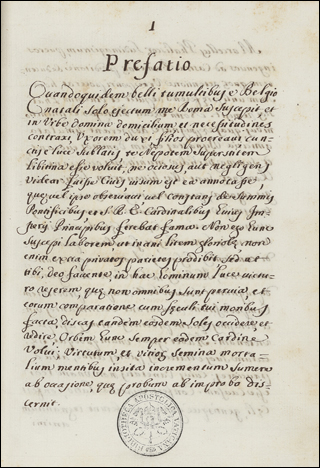 1
Prefatio
Quandoquidem belli tumultibus e Belgio
natali solo ejectum me Roma suscepit et
in Urbe domina domicilium et necessitudines
contraxi Uxorem duxi filios procreavi cun
ctis luce sublatis te Nepotem superstitem
libitina esse voluit, ne ociosus aut negligens
videar saepe Ejus visum est ea annotasse,
quae vel ipse observavi vel constans de Summis
Pontificibus et S. R. E. Cardinalibus Ejusq
Principibus ferebat fama. Non eo Fine
suscepi laborem ut inani litem gloriolae, non
enim extra privatos parietes prodibit sed ut
tibi, deo favente, in hac hominum luce
usserem, quae non omnibus sunt pervia, et
eorum comparatione cum seculi tui moribus
facta, discas tandem eosdem Soles occidere et
redire, Orbem Fune semper eodem Cardine
Volvi, Virtutum et vitiorum semina morta
lium mentibus insita incrementum sumere
ab occasione, quae probum ab improbo dis
cernit.
BIBLIOTHECA APOSTOLICA VATICANA